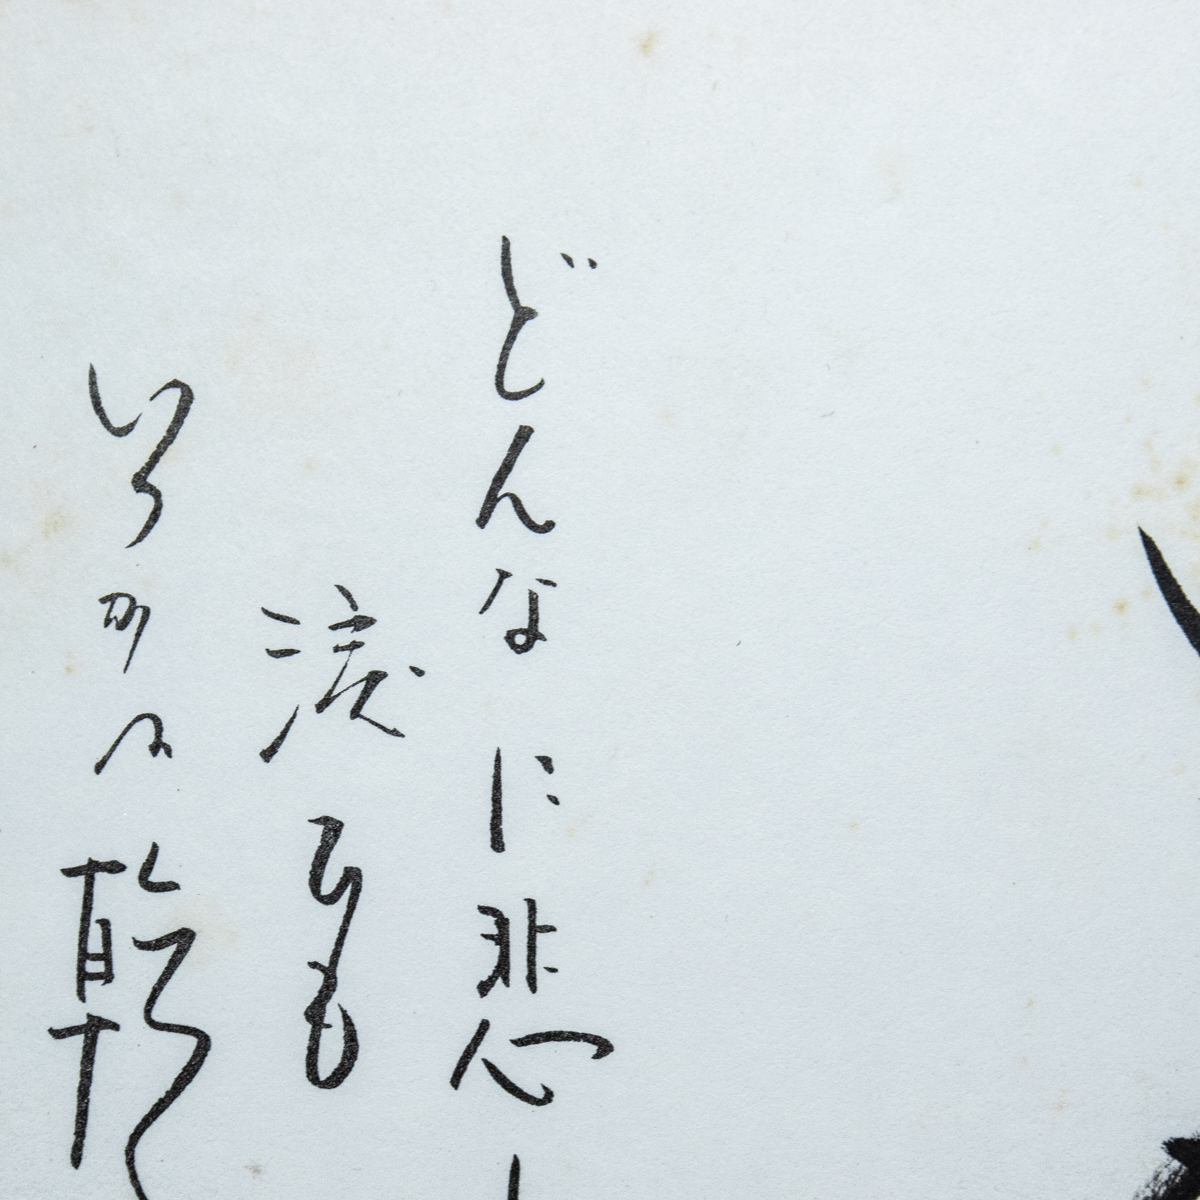 どんなに悲し
涙でも
いつかは乾